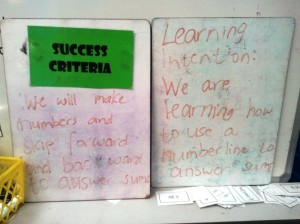 SUCCESS
CRITERIA
We will make
numbers and
skip forward
and backward
to answer sums
Learning
Intention:
We are
learning how
to use a
numberline to
answer sums